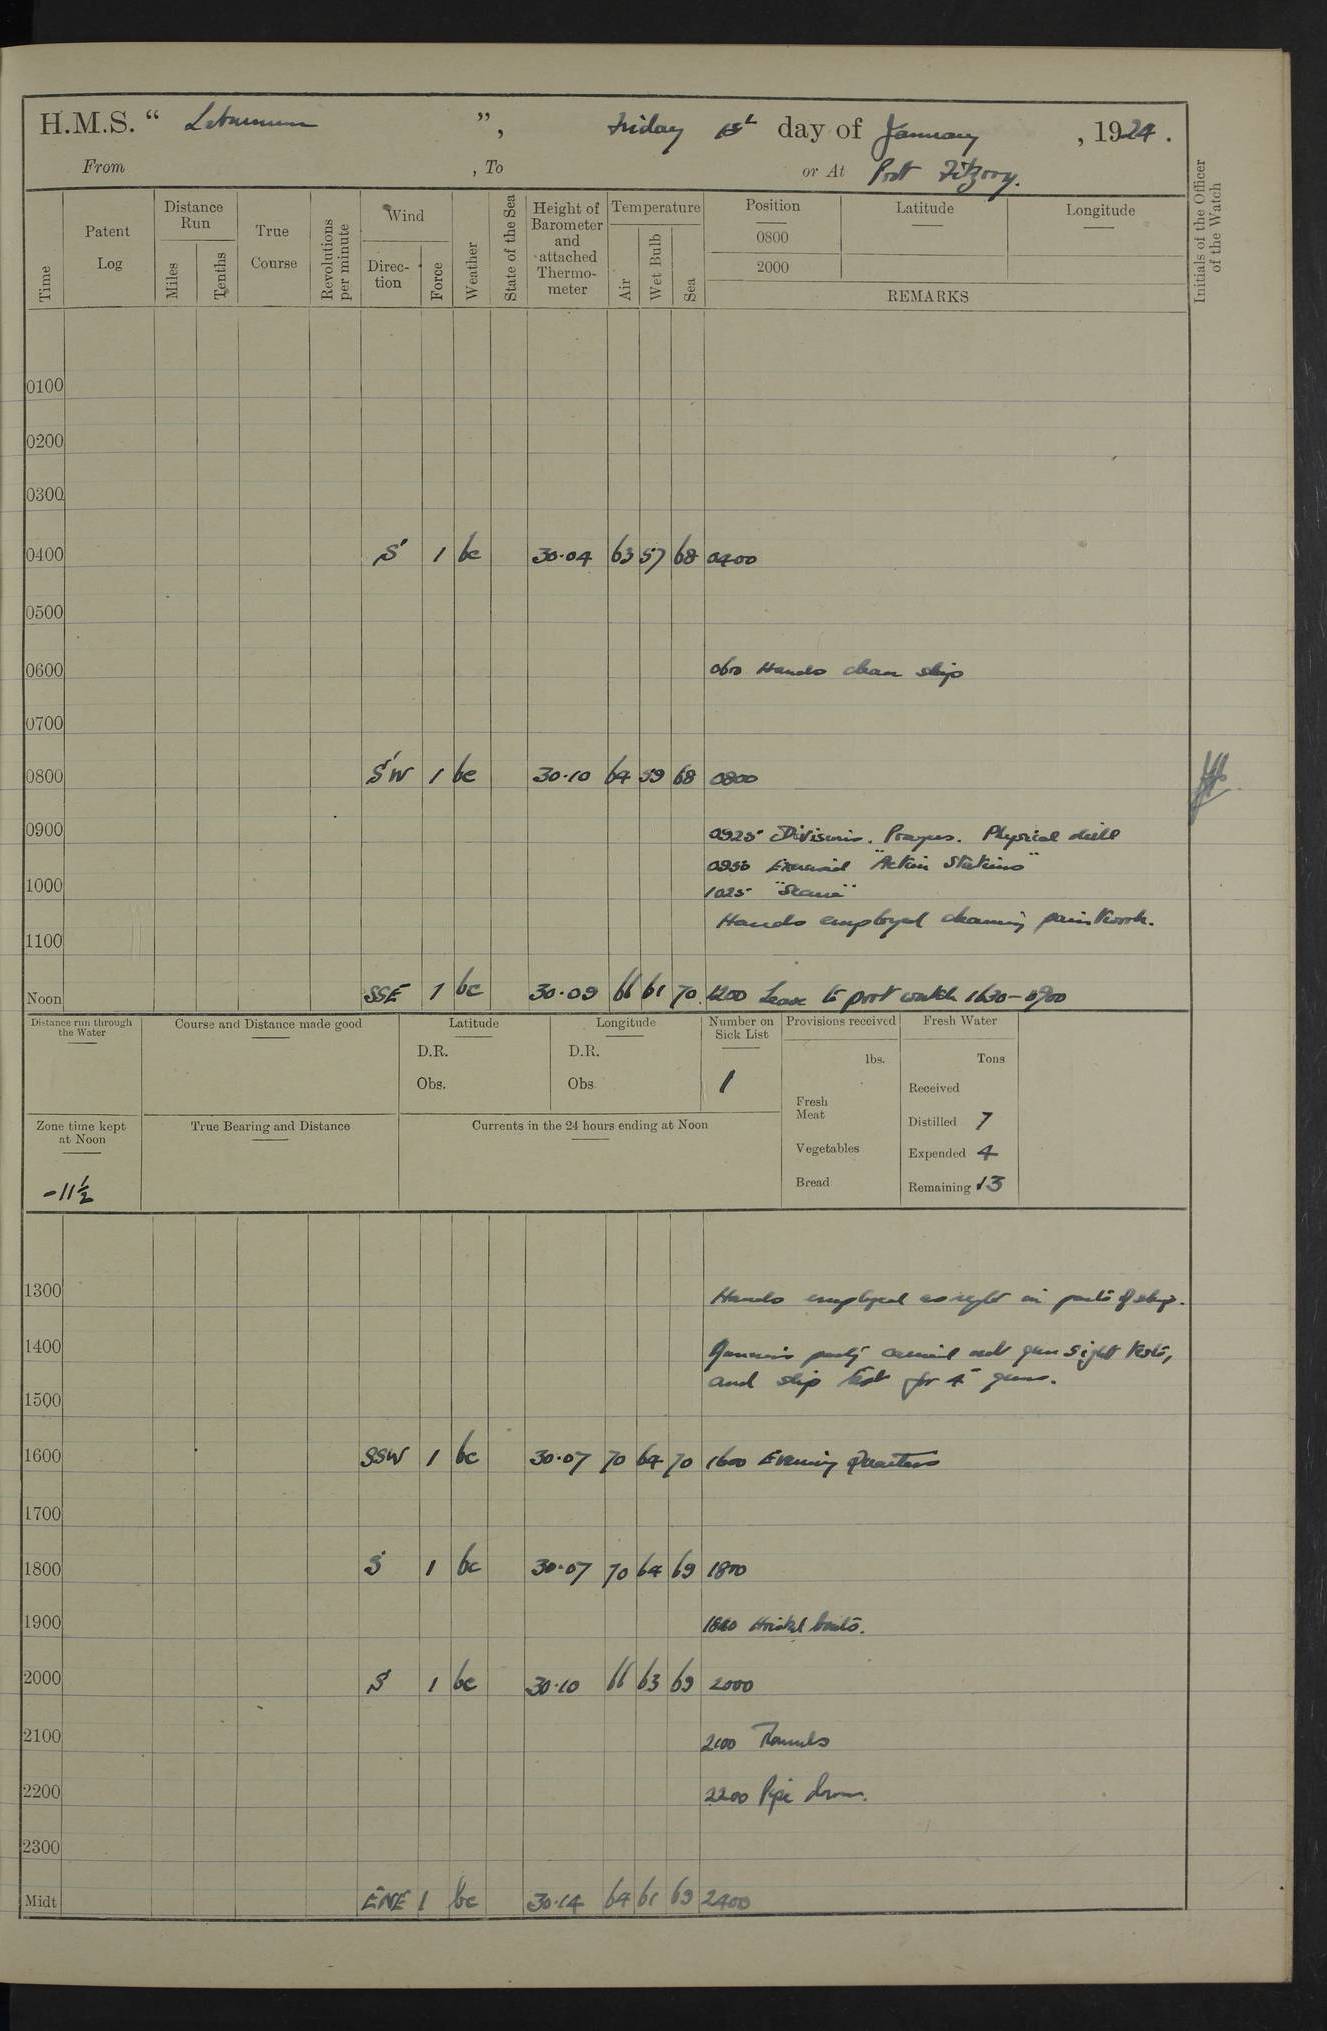 H.M.S. “ Laburnum ”, Friday day of January, 1924.
From , To or At Port Fitzroy.
Time Patent Log Distance Run Miles Tenths True Course Revolutions per minute Wind Direc-tion Force Weather State of the Sea Height of Barometer and attached Thermo-meter Temperature Air Wet Bulb Sea Position Latitude Longitude Initials of the Officer of the Watch
0800
2000
REMARKS
0100
0200
0300
0400 S 1 bc 30.04 63 57 68 0400
0500
0600 0600 Hands clean ship
0700
0800 SW 1 bc 30.10 64 59 68 0800
0900 0925 Divisions. Prayers. Physical drill
0930 Exercised "Action Stations"
1000 1025 "Secure"
Hands employed cleaning paintwork.
1100
Noon SSE 1 bc 30.09 66 61 70 1200 Leave to port watch 1630-0700
Distance run through the Water Course and Distance made good Latitude Longitude Number on Sick List Provisions received Fresh Water
D.R. D.R. lbs. Tons
Obs. Obs 1 Received
Fresh Meat Distilled 7
Zone time kept at Noon True Bearing and Distance Currents in the 24 hours ending at Noon
Vegetables Expended 4
-11½ Bread Remaining 13
1300 Hands employed as reqte in parts of ship.
1400 Gunner's party carried out gun sight tests,
and slip test for 4" guns.
1500
1600 SSW 1 bc 30.07 70 64 70 1600 Evening Quarters
1700
1800 S 1 bc 30.07 70 64 69 1800
1900 Hoisted boats.
2000 S 1 bc 30.10 66 63 69 2000
2100 2100 Rounds
2200 2200 Pipe down.
2300
Midt ENE 1 bc 30.14 64 61 69 2400